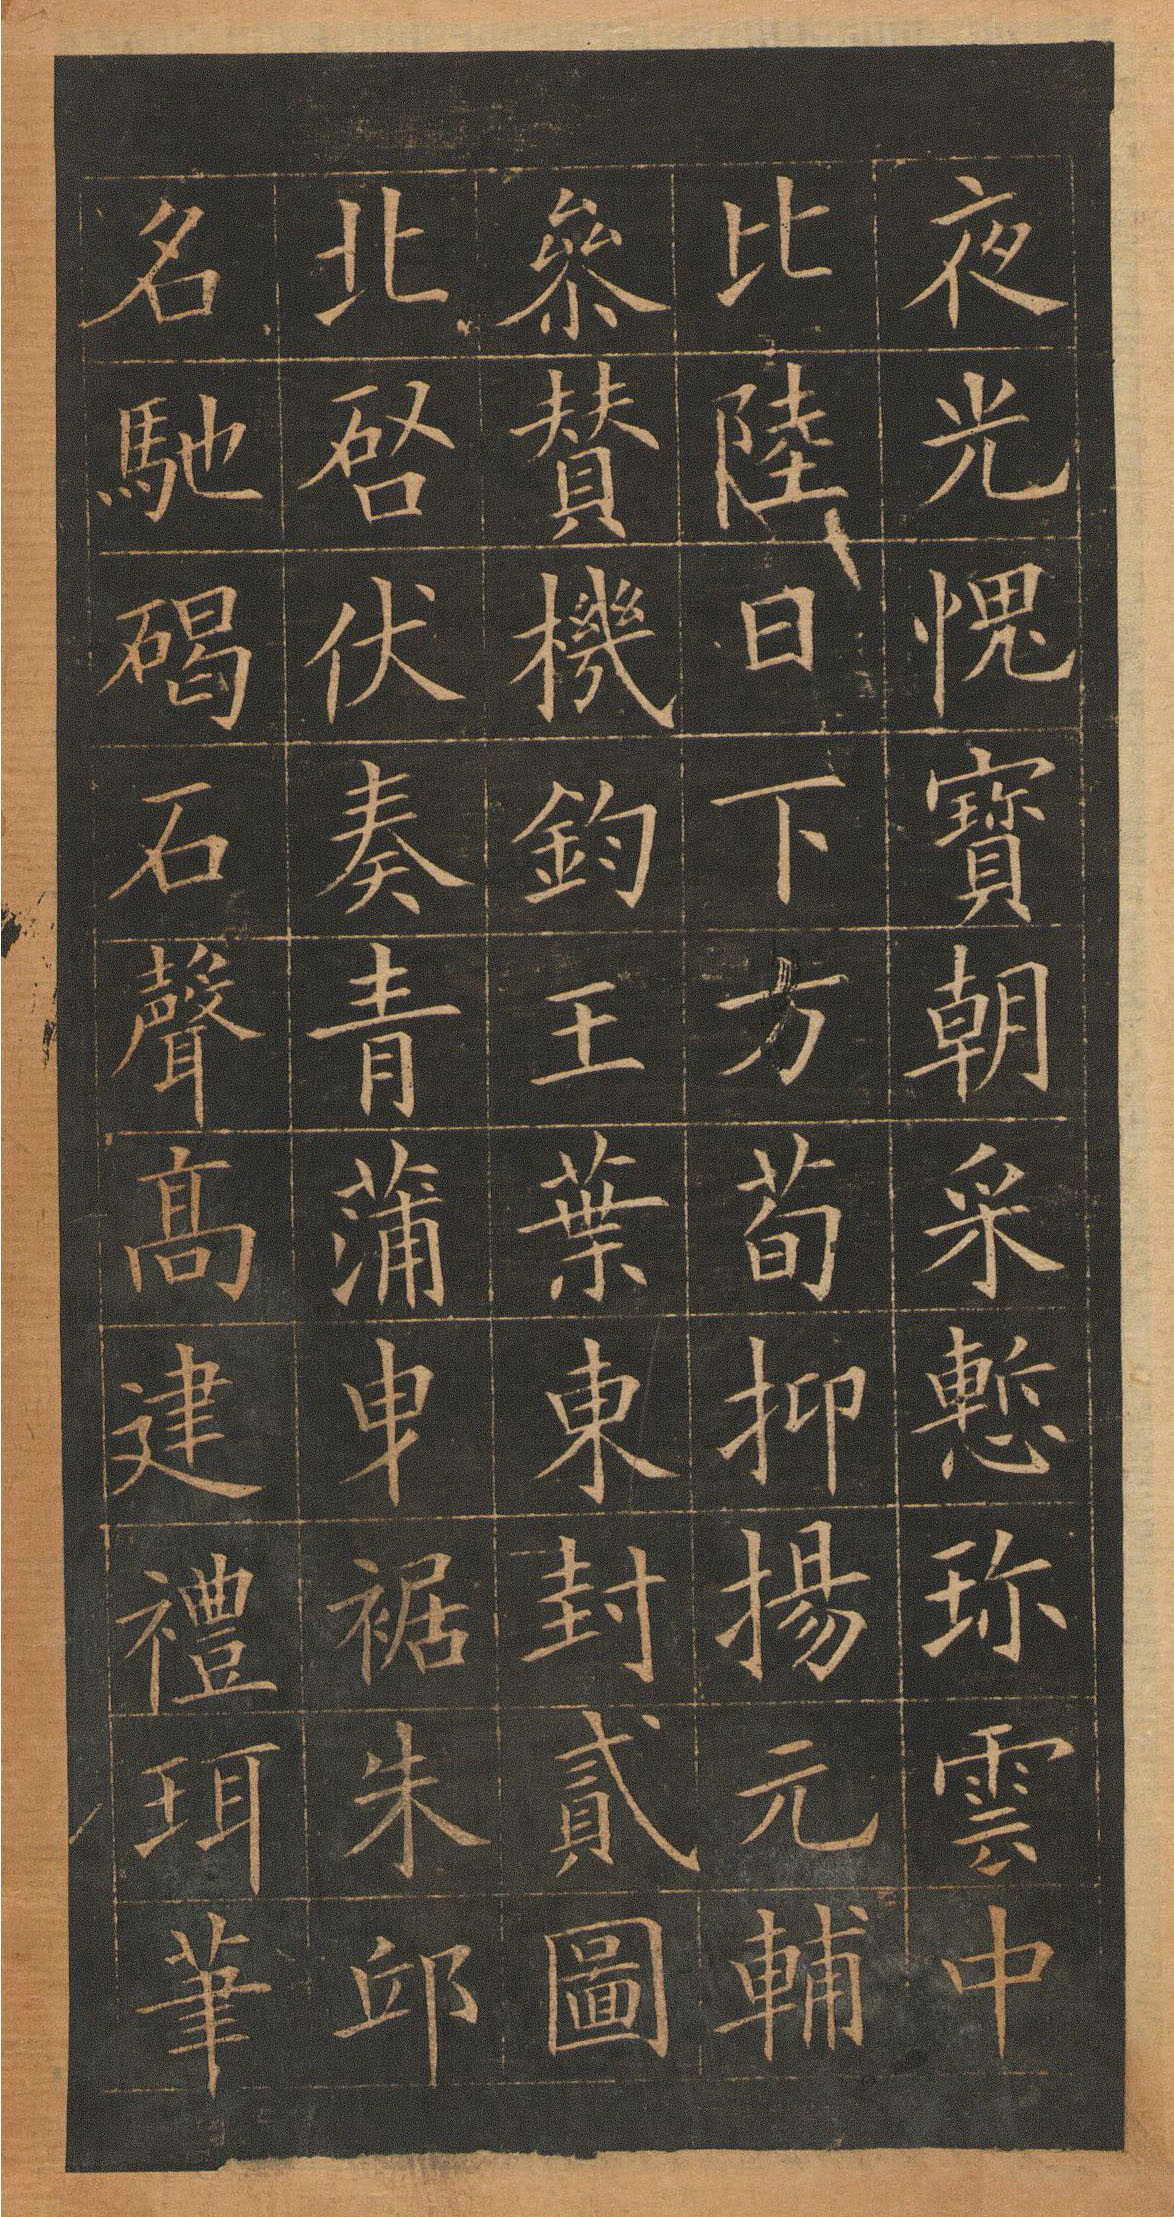 夜光愧寶朝采慙珎雲中
比陸日下方荀抑揚元輔
叅賛機鈞王葉東封貳圖
北啓伏奏青蒲曳裾朱邸
名馳碣石聲髙建禮珥筆